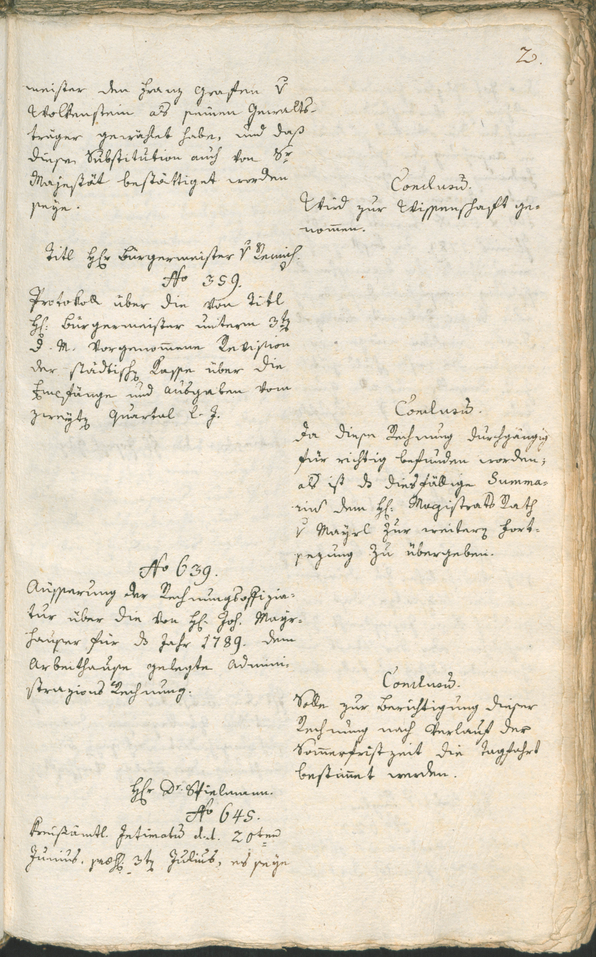 2.
meister den Franz Grafen v
Wolkenstein als seinen Gewalts-
träger gewählet habe, und daß
diese Substitution auch von Sr
Majestät bestättiget worden
seye.
Conclusū.
Wird zur Wissenschaft ge-
nommen.
Titl Hr Bürgermeister v
No 359.
Protokoll über die von Titl
H: Bürgermeister unterm 3t
d. M. vorgenommene Revision
der städtisch Kasse über die
Empfänge und Ausgaben vom
zweyt Quartal l. J.
Conclusū.
Da diese Rechnung durchgängig
für richtig befunden worden;
als ist d diesfällige Summa-
dem H: Magistrats Rath
v Mayrl zur weiter Fort-
setzung zu übergeben.
No 639.
Äusserung der Rechnungsoffizia-
tur über die von H: Joh. Mayr-
hauser für d Jahr 1789. dem
Arbeithause gelegte Admini-
strazions Rechnung.
Conclusū.
Solle zur Berichtigung dieser
Rechnung nach Verlauf der
Sommerfristzeit die Tagfahrt
bestimt werden.
Hr Dr. Stielmann.
No 645.
Kreisämtl. Intimatū d.d. 20ten
Junius, 3t Julius, es seye